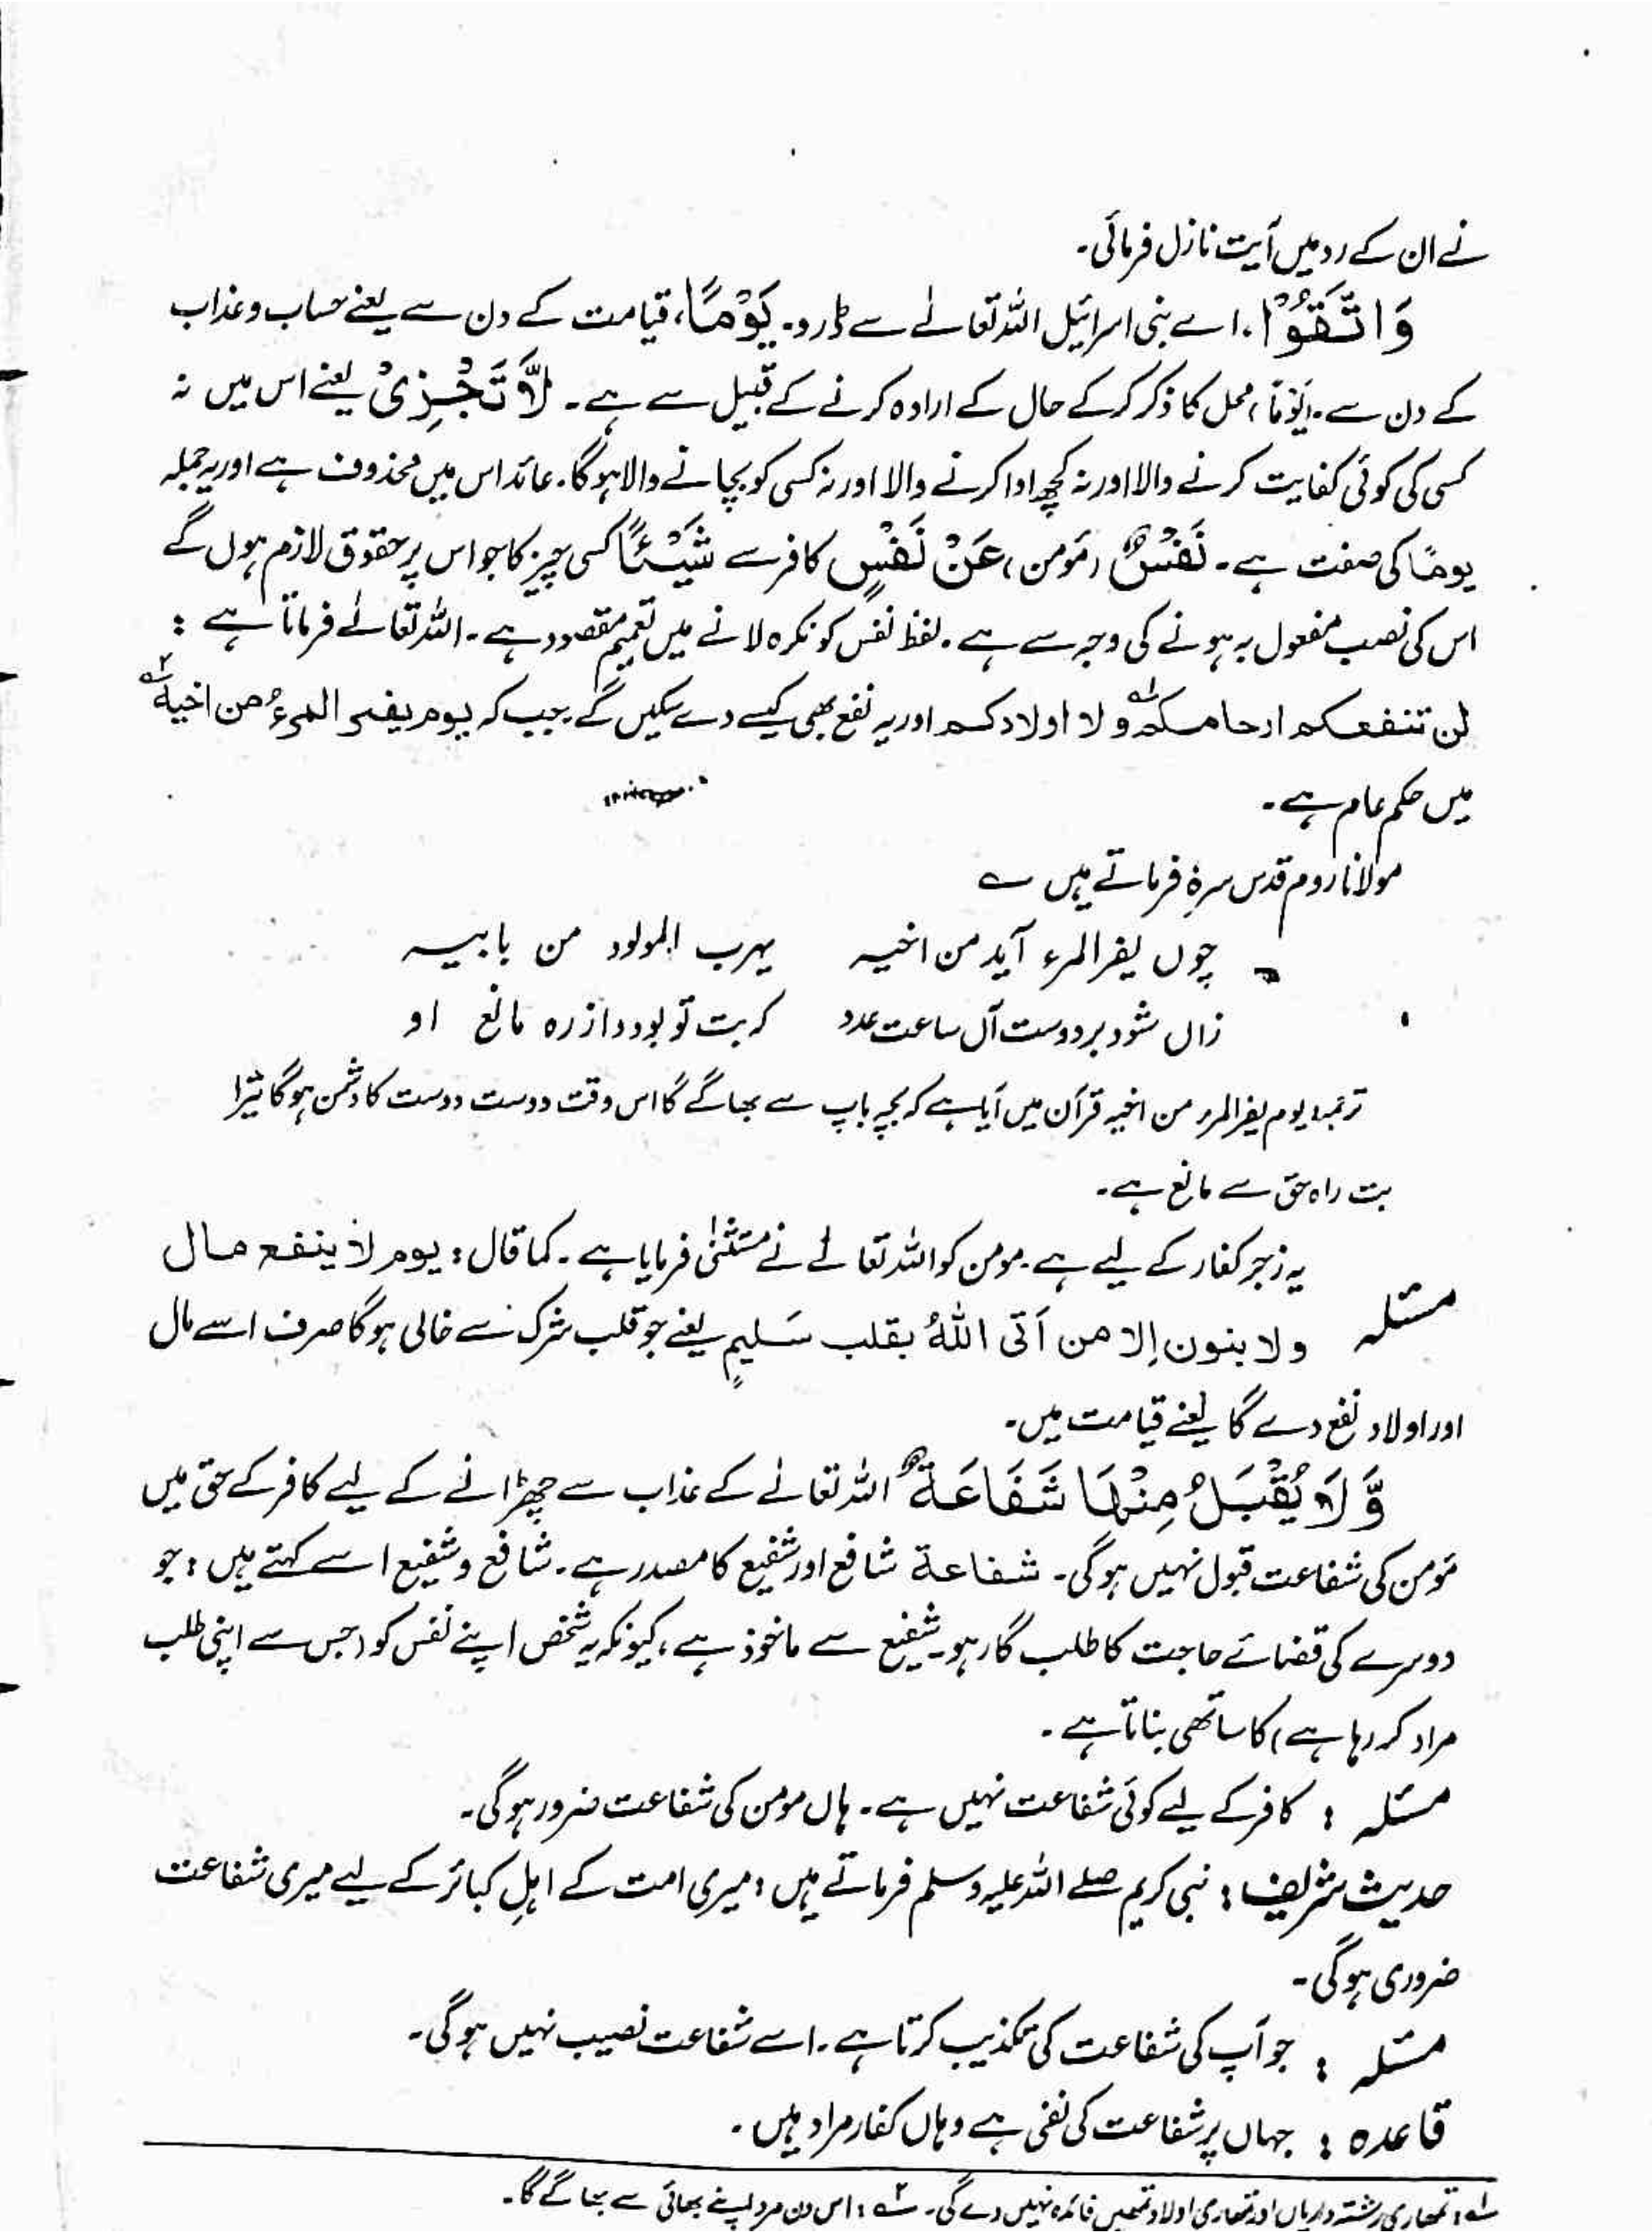 نے ان کے رد میں آیت نازل فرمائی۔
وَاتَّقُوْا، اے بنی اسرائیل اللہ تعالےٰ سے ڈرو۔ یَوْمًا، قیامت کے دن سے یعنے حساب و عذاب
کے دن سے۔ یَوْمًا، محل کا ذکر کرکے حال کے ارادہ کرنے کے قبیل سے ہے۔ لَّا تَجْزِیْ یعنے اس میں نہ
کسی کی کوئی کفایت کرنے والا اور نہ کچھ ادا کرنے والا اور نہ کسی کو بچانے والا ہوگا۔ عائد اس میں محذوف ہے اور یہ جملہ
یومًا کی صفت ہے۔ نَفْسٌ (مَومن) عَنْ نَفْسٍ کافر سے شَیْـئًا کسی چیز کا جو اس پر حقوق لازم ہوں گے
اس کی نصب مفعول بہ ہونے کی وجہ سے ہے۔ لفظ نفس کو نکرہ لانے میں تعمیم مقصود ہے۔ اللہ تعالےٰ فرماتا ہے :
لن تنفعکم ارحامکم؎۱ ولا اولادکم اور یہ نفع بھی کیسے دے سکیں گے جب کہ یوم یفر المرءُ من اخیہ؎۲
میں حکم عام ہے۔
مولانا روم قدس سرہٗ فرماتے ہیں ؎
چوں یفر المرء آید من اخیہ یہرب المولود من بابیہ
زاں شود ہر دوست آں ساعت عدو کہ بت تو بود از رہ مانع او
ترجمہ: یوم یفر المرء من اخیہ قرآن میں آیا ہے کہ بچہ باپ سے بھاگے گا اس وقت دوست دوست کا دشمن ہوگا تیرا
بت راہ حق سے مانع ہے۔
مسئلہ یہ زجر کفار کے لیے ہے۔ مومن کو اللہ تعالےٰ نے مستثنیٰ فرمایا ہے۔ کما قال : یوم لا ینفع مال
ولا بنون إلا من اَتی اللہُ بقلب سَلیمٍ یعنے جو قلب شرک سے خالی ہوگا صرف اسے مال
اور اولاد نفع دے گا یعنے قیامت میں۔
وَّلَا یُقْبَلُ مِنْہَا شَفَاعَۃٌ اللہ تعالےٰ کے عذاب سے چھڑانے کے لیے کافر کے حق میں
مَومن کی شفاعت قبول نہیں ہوگی۔ شفاعۃ شافع اور شفیع کا مصدر ہے۔ شافع و شفیع اسے کہتے ہیں : جو
دوسرے کی قضائے حاجت کا طلب گار ہو۔ شفیع سے ماخوذ ہے، کیونکہ یہ شخص اپنے نفس کو (جس سے اپنی طلب
مراد کر رہا ہے) کا ساتھی بناتا ہے۔
مسئلہ : کافر کے لیے کوئی شفاعت نہیں ہے۔ ہاں مومن کی شفاعت ضرور ہوگی۔
حدیث شریف : نبی کریم صلے اللہ علیہ وسلم فرماتے ہیں : میری امت کے اہلِ کبائر کے لیے میری شفاعت
ضروری ہوگی۔
مسئلہ : جو آپ کی شفاعت کی تکذیب کرتا ہے۔ اسے شفاعت نصیب نہیں ہوگی۔
قاعدہ : جہاں پر شفاعت کی نفی ہے وہاں کفار مراد ہیں۔
؎۱ : تمھاری رشتہ داریاں اور تمھاری اولاد تمھیں فائدہ نہیں دے گی۔ ؎۲ : اس دن مرد اپنے بھائی سے بھاگے گا۔